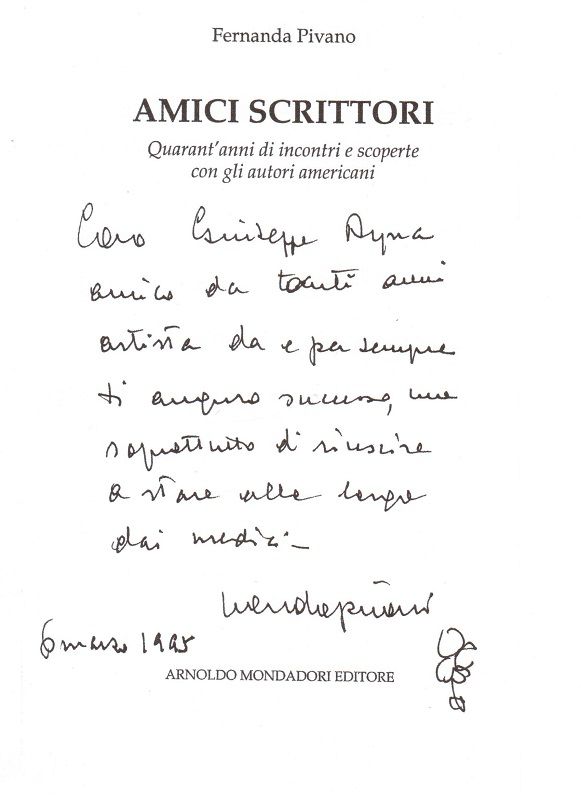 Fernanda Pivano
AMICI SCRITTORI
Quarant'anni di incontri e scoperte
con gli autori americani
Caro Giuseppe Ayna
amico da tanti anni
artista da e per sempre
ti auguro successo, ma
soprattutto di riuscire
a stare alla larga
dai medici –
nandapivano
6 marzo 1995
ARNOLDO MONDADORI EDITORE